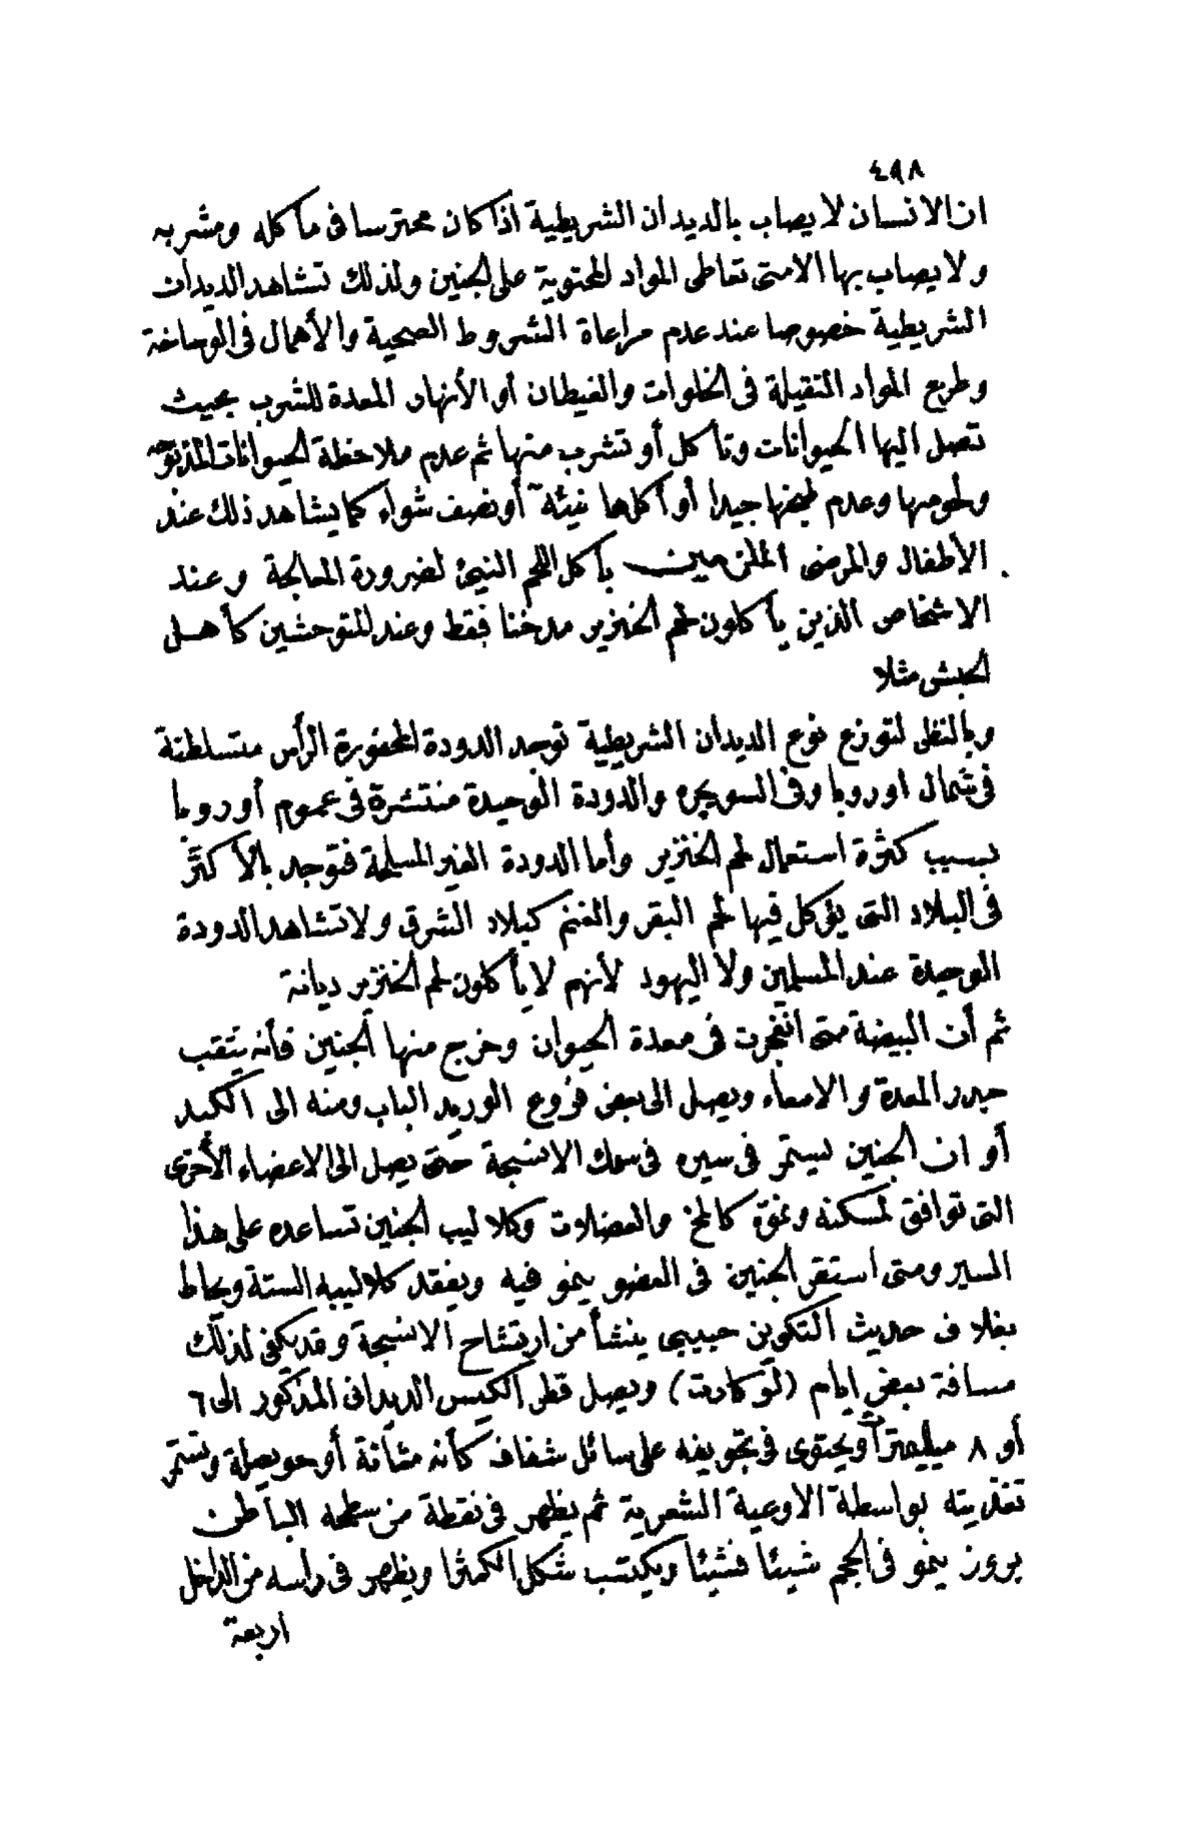 ٤٩٨
ان الانسان لا يصاب بالديدان الشريطية اذا كان محترسا فى مأكله ومشربه
ولا يصاب بها الا متى تعاطى المواد المحتوية على الجنين ولذلك تشاهد الديدان
الشريطية خصوصا عند عدم مراعاة الشروط الصحية والأهمال فى الوساخة
وطرح المواد الثقيلة فى الخلوات والغيطان أو الأنهار المعدة للشرب بحيث
تصل اليها الحيوانات وتأكل أو تشرب منها ثم عدم ملاحظة الحيوانات المذبوحة
ولحومها وعدم طبخها جيدا أو أكلها نيئة أو نصف شواء كما يشاهد ذلك عند
الأطفال والمرضى الملزمين بأكل اللحم النيئ لضرورة المعالجة وعند
الاشخاص الذين يأكلون لحم الخنزير مدخنا فقط وعند المتوحشين كأهل
الحبش مثلا
وبالنظر لتوزع نوع الديدان الشريطية توجد الدودة المحفورة الرأس متسلطنة
فى شمال اوروبا وفى السويچره والدودة الوحيدة منتشرة فى عموم أوروبا
بسبب كثرة استعمال لحم الخنزير وأما الدودة الغير المسلحة فتوجد بالأكثر
فى البلاد التى يؤكل فيها لحم البقر والغنم كبلاد الشرق ولا تشاهد الدودة
الوحيدة عند المسلمين ولا اليهود لأنهم لا يأكلون لحم الخنزير ديانة
ثم أن البيضة متى انفجرت فى معدة الحيوان وخرج منها الجنين فأنه يثقب
جدر المعدة والامعاء ويصل الى بعض فروع الوريد الباب ومنه الى الكبد
أو ان الجنين يستمر فى سيره فى سمك الانسجة حتى يصل الى الاعضاء الأخرى
التى توافق لمسكنه ونموّه كالمخ والعضلات وكلاليب الجنين تساعده على هذا
السير ومتى استقر الجنين فى العضو ينمو فيه ويفقد كلاليبه الستة ويحاط
بغلاف حديث التكوين حبيبى ينشأ من ارتشاح الانسجة وقد يكفى لذلك
مسافة بعض ايام (لوكارت) ويصل قطر الكيس الديدانى المذكور الى ٦
أو ٨ ميلليمترات ويحتوى فى تجويفه على سائل شفاف كأنه مثانة أو حويصلة وتستمر
تغذيته بواسطة الاوعية الشعرية ثم يظهر فى نقطة من سطحه الباطن
بروز ينمو فى الحجم شيئا فشيئا ويكتسب شكل الكمثرا ويظهر فى رأسه من الداخل
اربعة